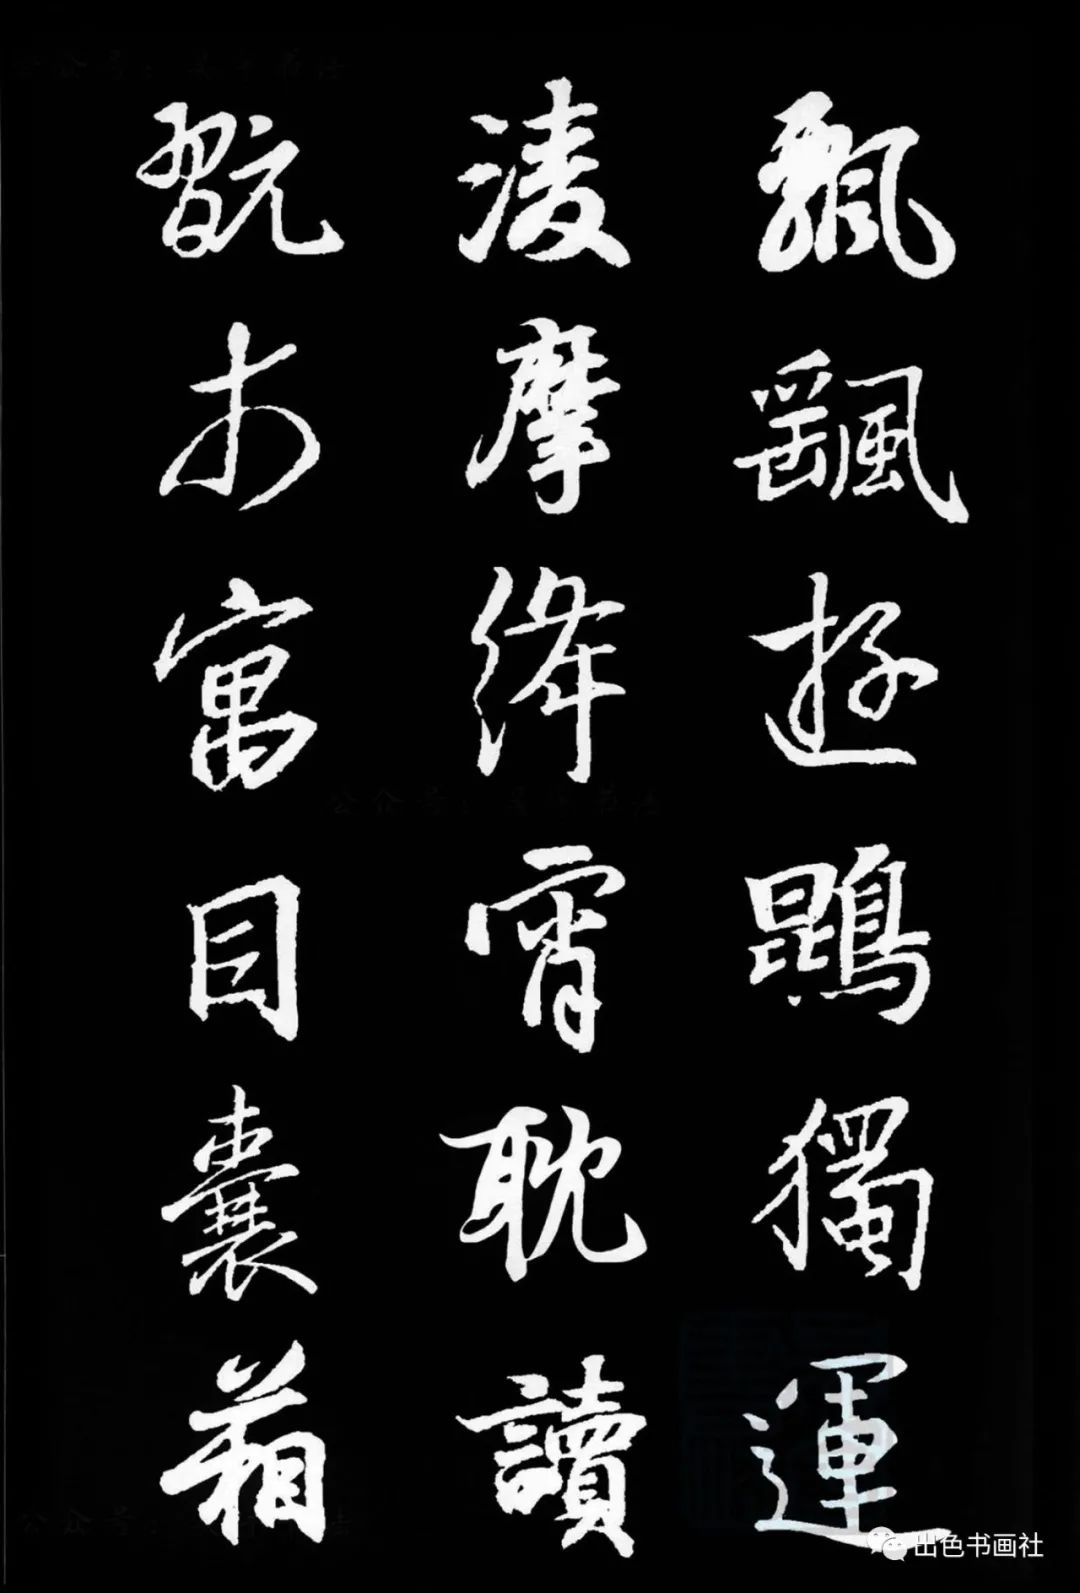 飄颻遊鵾獨運
淩摩絳霄耽讀
翫市寓目囊葙
出色书画社